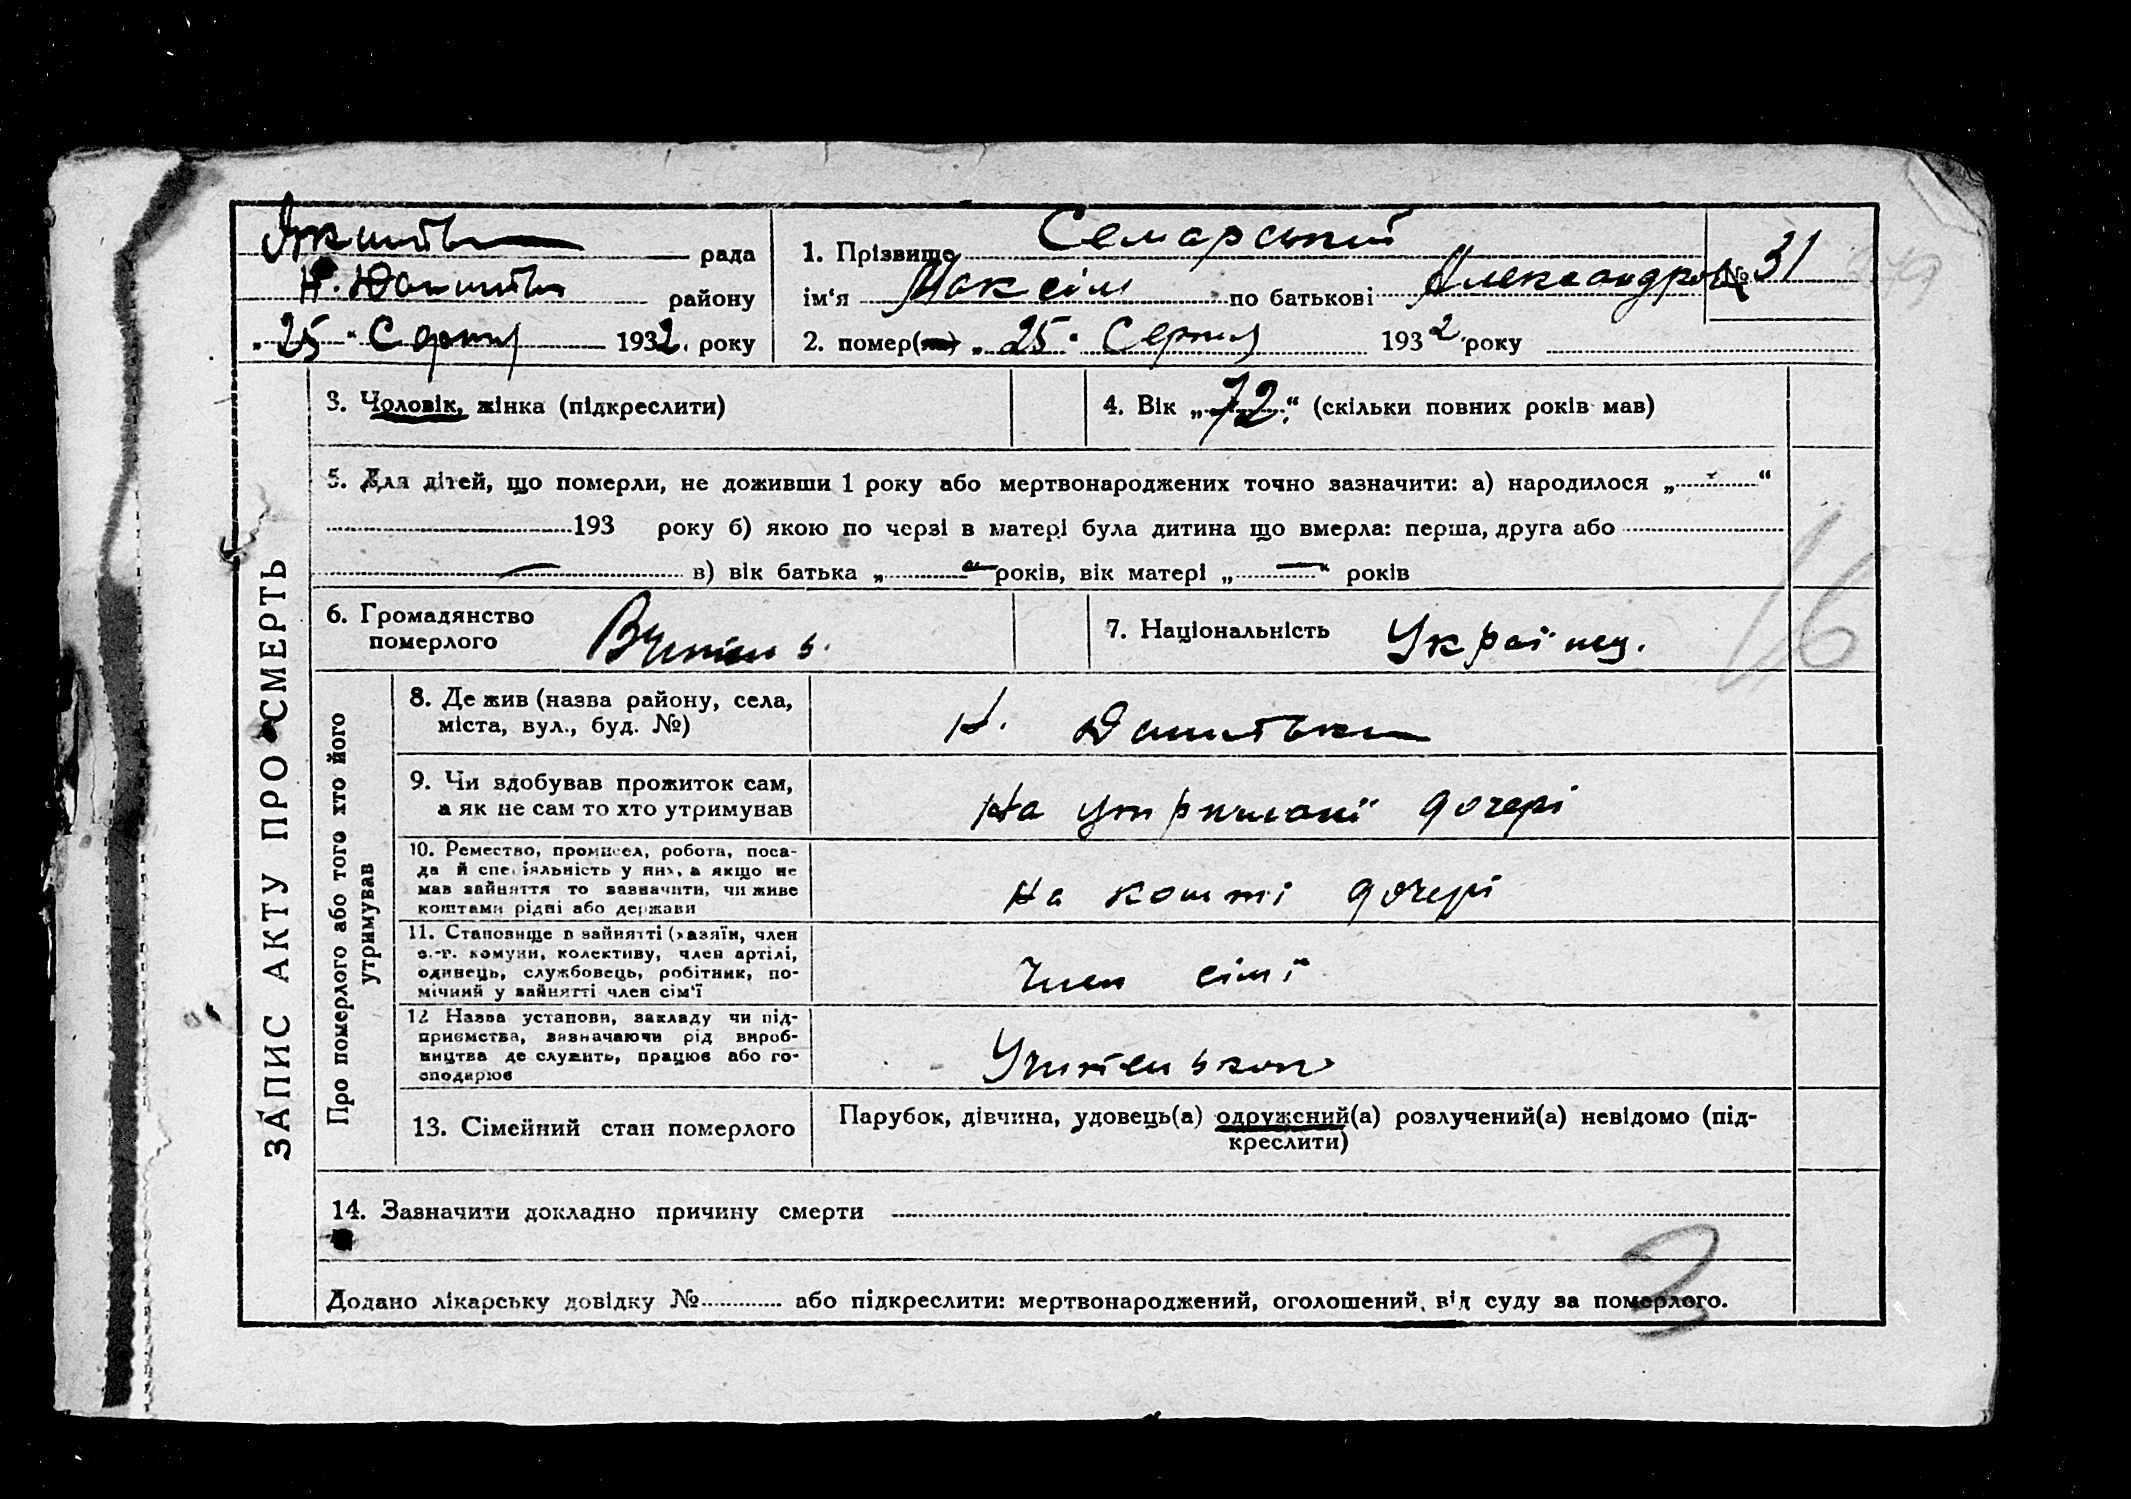 рада
району
„25“ Серпня 1932. року
1. Прізвище Семарський
ім'я Максім по батькові Александров
№ 31
2. помер(ла) „25“ Серпня 1932 року
ЗАПИС АКТУ ПРО СМЕРТЬ
3. Чоловік, жінка (підкреслити)
4. Вік „72“ (скільки повних років мав)
5. Для дітей, що померли, не доживши 1 року або мертвонароджених точно зазначити: а) народилося „ “
193 року б) якою по черзі в матері була дитина що вмерла: перша, друга або
в) вік батька „ “ років, вік матері „ “ років
6. Громадянство
померлого
7. Національність Українец.
Про померлого або того хто його
утримував
8. Де жив (назва району, села,
міста, вул., буд. №)
Н.
9. Чи здобував прожиток сам,
а як не сам то хто утримував
На утриманії дочері
10. Ремество, промисел, робота, поса-
да й спеціяльність у них, а якщо не
мав зайняття то зазначити, чи живе
коштами рідні або держави
На кошті дочері
11. Становище в зайнятті (хазяїн, член
с.-г. комуни, колективу, член артілі,
одинець, службовець, робітник, по-
мічний у зайнятті член сім'ї
Член сімї
12 Назва установи, закладу чи під-
приємства, зазначаючи рід вироб-
ництва де служить, працює або го-
сподарює
13. Сімейний стан померлого
Парубок, дівчина, удовець(а) одружений(а) розлучений(а) невідомо (під-
креслити)
14. Зазначити докладно причину смерти
Додано лікарську довідку № або підкреслити: мертвонароджений, оголошений, від суду за померлого.
16
2